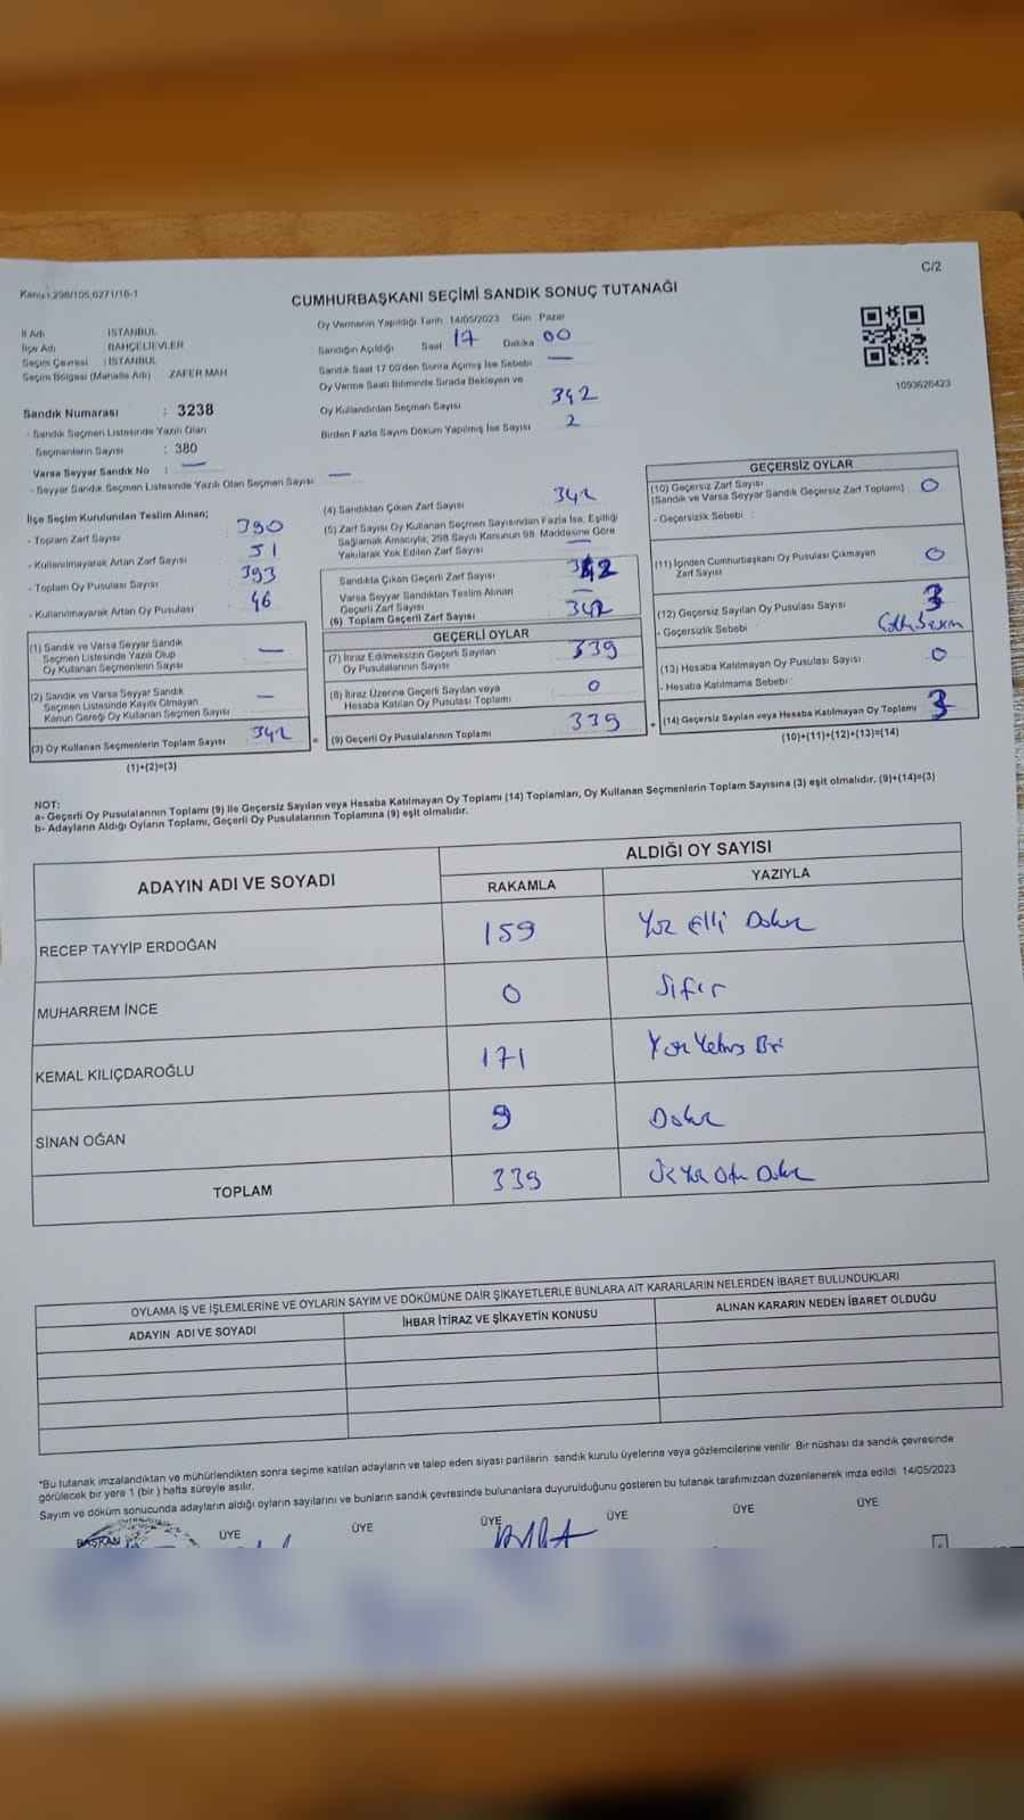 C/2
Kanun 298/105,6271/16-1
CUMHURBAŞKANI SEÇİMİ SANDIK SONUÇ TUTANAĞI
İl Adı : İSTANBUL
İlçe Adı : BAHÇELİEVLER
Seçim Çevresi : İSTANBUL
Seçim Bölgesi (Mahalle Adı) ZAFER MAH
Sandık Numarası : 3238
- Sandık Seçmen Listesinde Yazılı Olan
Seçmenlerin Sayısı : 380
Varsa Seyyar Sandık No : —
- Seyyar Sandık Seçmen Listesinde Yazılı Olan Seçmen Sayısı —
Oy Vermenin Yapıldığı Tarih 14/05/2023 Gün Pazar
Sandığın Açıldığı Saat 17 Dakika 00
Sandık Saat 17:00'den Sonra Açılmış İse Sebebi —
Oy Verme Saati Bitiminde Sırada Bekleyen ve
Oy Kullandırılan Seçmen Sayısı 342
Birden Fazla Sayım Döküm Yapılmış İse Sayısı 2
1093626423
İlçe Seçim Kurulundan Teslim Alınan;
- Toplam Zarf Sayısı 390
- Kullanılmayarak Artan Zarf Sayısı 51
- Toplam Oy Pusulası Sayısı 393
- Kullanılmayarak Artan Oy Pusulası 46
(1) Sandık ve Varsa Seyyar Sandık
Seçmen Listesinde Yazılı Olup
Oy Kullanan Seçmenlerin Sayısı —
(2) Sandık ve Varsa Seyyar Sandık
Seçmen Listesinde Kayıtlı Olmayan
Kanun Gereği Oy Kullanan Seçmen Sayısı —
(3) Oy Kullanan Seçmenlerin Toplam Sayısı 342
(1)+(2)=(3)
(4) Sandıktan Çıkan Zarf Sayısı 342
(5) Zarf Sayısı Oy Kullanan Seçmen Sayısından Fazla İse, Eşitliği
Sağlamak Amacıyla; 298 Sayılı Kanunun 98. Maddesine Göre
Yakılarak Yok Edilen Zarf Sayısı —
Sandıkta Çıkan Geçerli Zarf Sayısı 342
Varsa Seyyar Sandıktan Teslim Alınan
Geçerli Zarf Sayısı —
(6) Toplam Geçerli Zarf Sayısı 342
GEÇERLİ OYLAR
(7) İtiraz Edilmeksizin Geçerli Sayılan
Oy Pusulalarının Sayısı 339
(8) İtiraz Üzerine Geçerli Sayılan veya
Hesaba Katılan Oy Pusulası Toplamı 0
(9) Geçerli Oy Pusulalarının Toplamı 339
GEÇERSİZ OYLAR
(10) Geçersiz Zarf Sayısı
(Sandık ve Varsa Seyyar Sandık Geçersiz Zarf Toplamı) 0
- Geçersizlik Sebebi :
(11) İçinden Cumhurbaşkanı Oy Pusulası Çıkmayan
Zarf Sayısı 0
(12) Geçersiz Sayılan Oy Pusulası Sayısı 3
- Geçersizlik Sebebi
(13) Hesaba Katılmayan Oy Pusulası Sayısı 0
- Hesaba Katılmama Sebebi :
(14) Geçersiz Sayılan veya Hesaba Katılmayan Oy Toplamı 3
(10)+(11)+(12)+(13)=(14)
NOT:
a- Geçerli Oy Pusulalarının Toplamı (9) ile Geçersiz Sayılan veya Hesaba Katılmayan Oy Toplamı (14) Toplamları, Oy Kullanan Seçmenlerin Toplam Sayısına (3) eşit olmalıdır. (9)+(14)=(3)
b- Adayların Aldığı Oyların Toplamı, Geçerli Oy Pusulalarının Toplamına (9) eşit olmalıdır.
ADAYIN ADI VE SOYADI
ALDIĞI OY SAYISI
RAKAMLA YAZIYLA
RECEP TAYYİP ERDOĞAN 159 Yüz Elli Dokuz
MUHARREM İNCE 0 Sıfır
KEMAL KILIÇDAROĞLU 171 Yüz Yetmiş Bir
SİNAN OĞAN 9 Dokuz
TOPLAM 339 Üç Yüz Otuz Dokuz
OYLAMA İŞ VE İŞLEMLERİNE VE OYLARIN SAYIM VE DÖKÜMÜNE DAİR ŞİKAYETLERLE BUNLARA AİT KARARLARIN NELERDEN İBARET BULUNDUKLARI
ADAYIN ADI VE SOYADI İHBAR İTİRAZ VE ŞİKAYETİN KONUSU ALINAN KARARIN NEDEN İBARET OLDUĞU
*Bu tutanak imzalandıktan ve mühürlendikten sonra seçime katılan adayların ve talep eden siyasi partilerin sandık kurulu üyelerine veya gözlemcilerine verilir. Bir nüshası da sandık çevresinde
görülecek bir yere 1 (bir) hafta süreyle asılır.
Sayım ve döküm sonucunda adayların aldığı oyların sayılarını ve bunların sandık çevresinde bulunanlara duyurulduğunu gösteren bu tutanak tarafımızdan düzenlenerek imza edildi. 14/05/2023
BAŞKAN ÜYE ÜYE ÜYE ÜYE ÜYE ÜYE